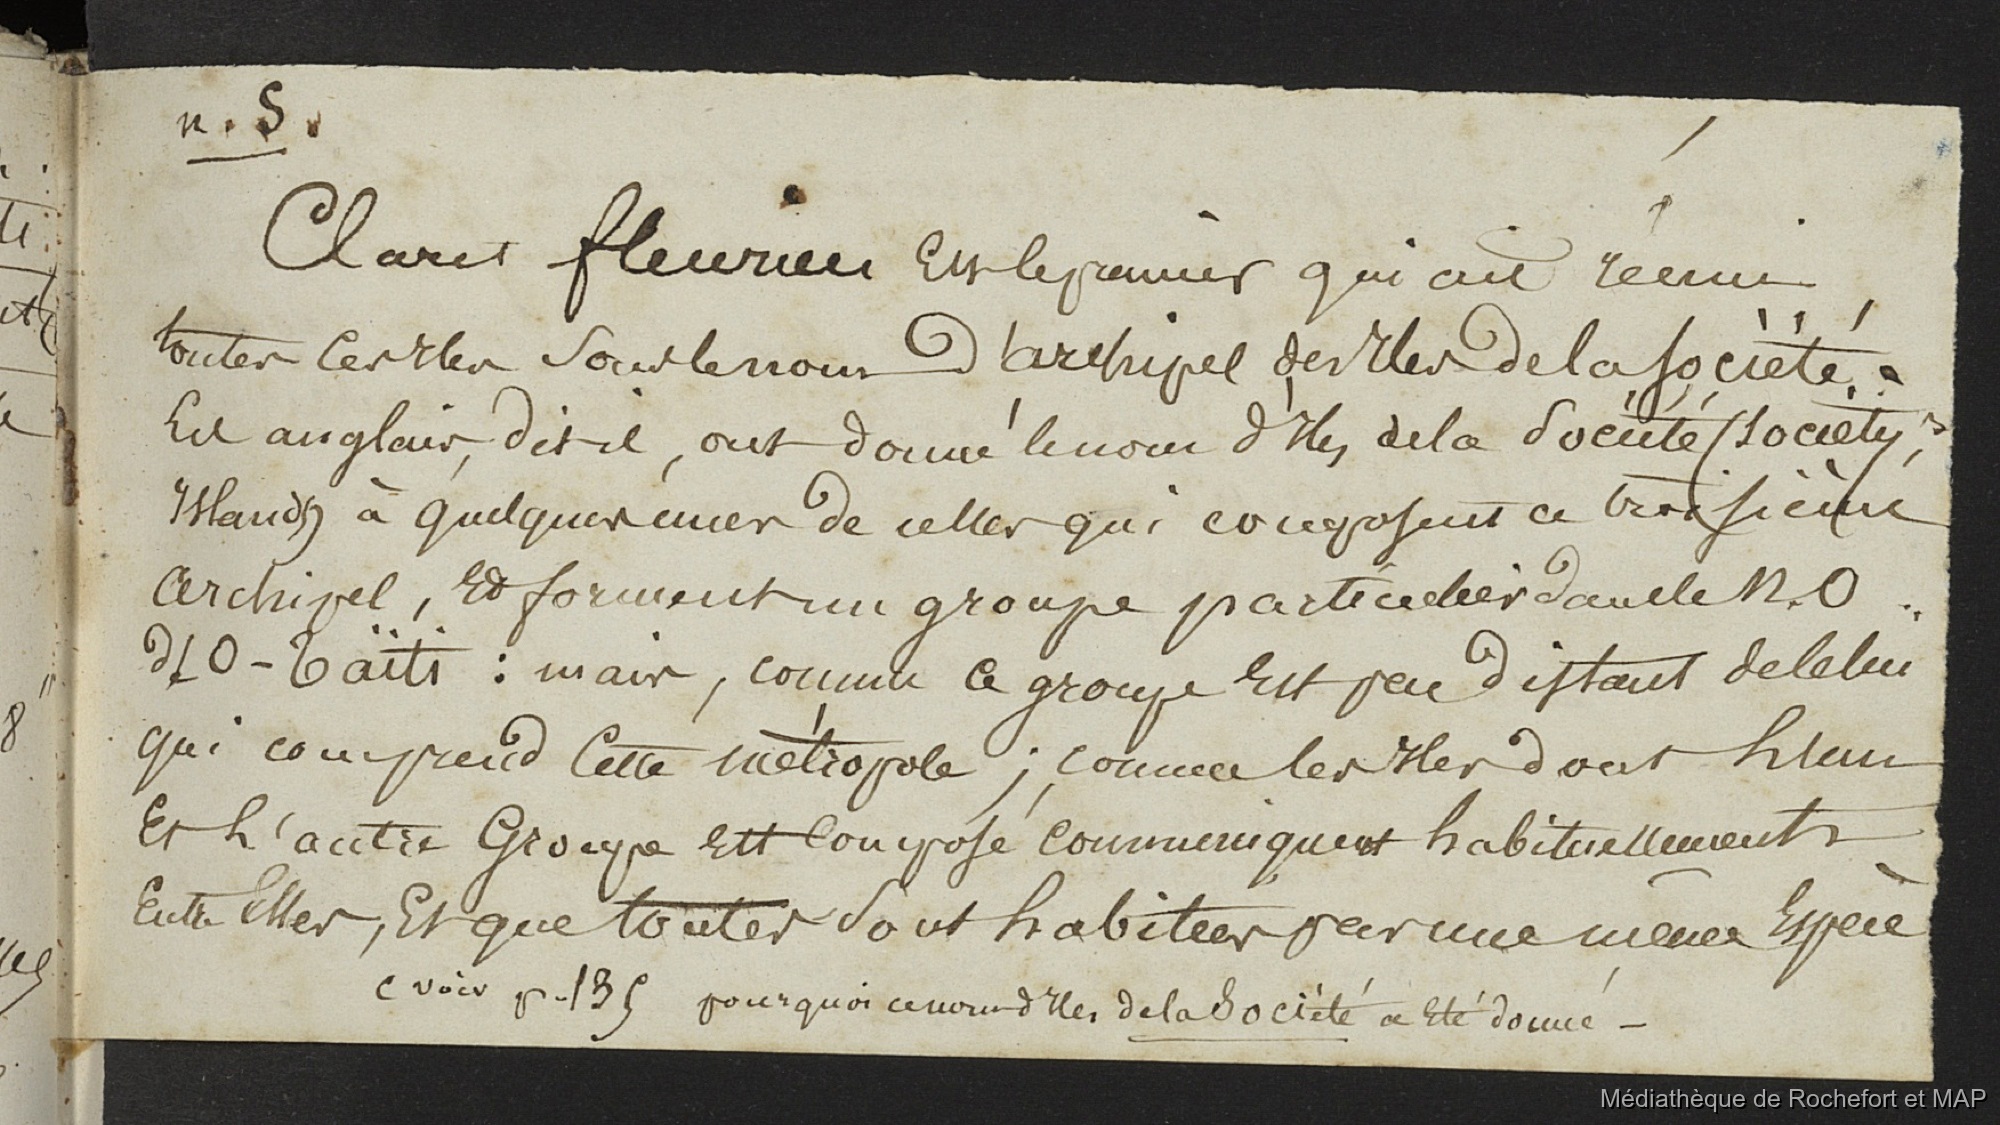 n. 5.
Claret fleurieu Est le premier qui ait réuni
toutes ces Iles sous le nom D'archipel des Iles de la Société.
Les anglais, dit-il, ont donné le nom d'Iles de la Société (Society
Islands) à quelques unes de celles qui composent ce troisième
archipel, Et forment un groupe particulier dans le N.O
d'O-Taïti : mais, comme ce groupe Est peu distant de celui
qui comprend cette métropole ; comme les Iles dont l'un
Et l'autre Groupe Est composé communiquent habituellement
Entre Elles, Et que toutes sont habitées par une même Espèce
voir p. 135 pourquoi ce nom d'Iles de la Société a Eté donné –
Médiathèque de Rochefort et MAP